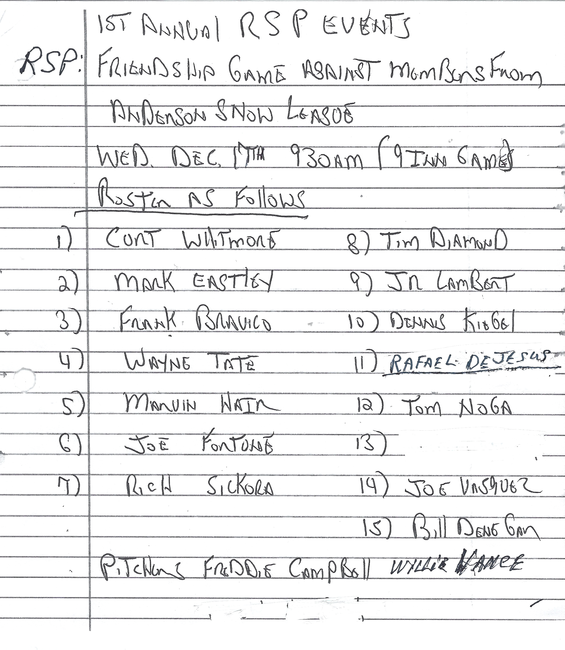 1ST ANNUAL RSP EVENTS
RSP: FRIENDSHIP GAME AGAINST MEMBERS FROM
ANDERSON SNOW LEAGUE
WED. DEC. 17TH 930AM (9 INN GAME)
ROSTER AS FOLLOWS
1) CURT WHITMORE 8) TIM DIAMOND
2) MARK EASTLEY 9) JR LAMBERT
3) FRANK BRAVICO 10) DENNIS KIEGEL
4) WAYNE TATE 11) RAFAEL DEJESUS
5) MARVIN HAIR 12) TOM NOGA
6) JOE FORTUNE 13)
7) RICH SICKORA 14) JOE VASQUEZ
15) Bill DENEGAN
PITCHERS FREDDIE CAMPBELL WILLIE VANCE